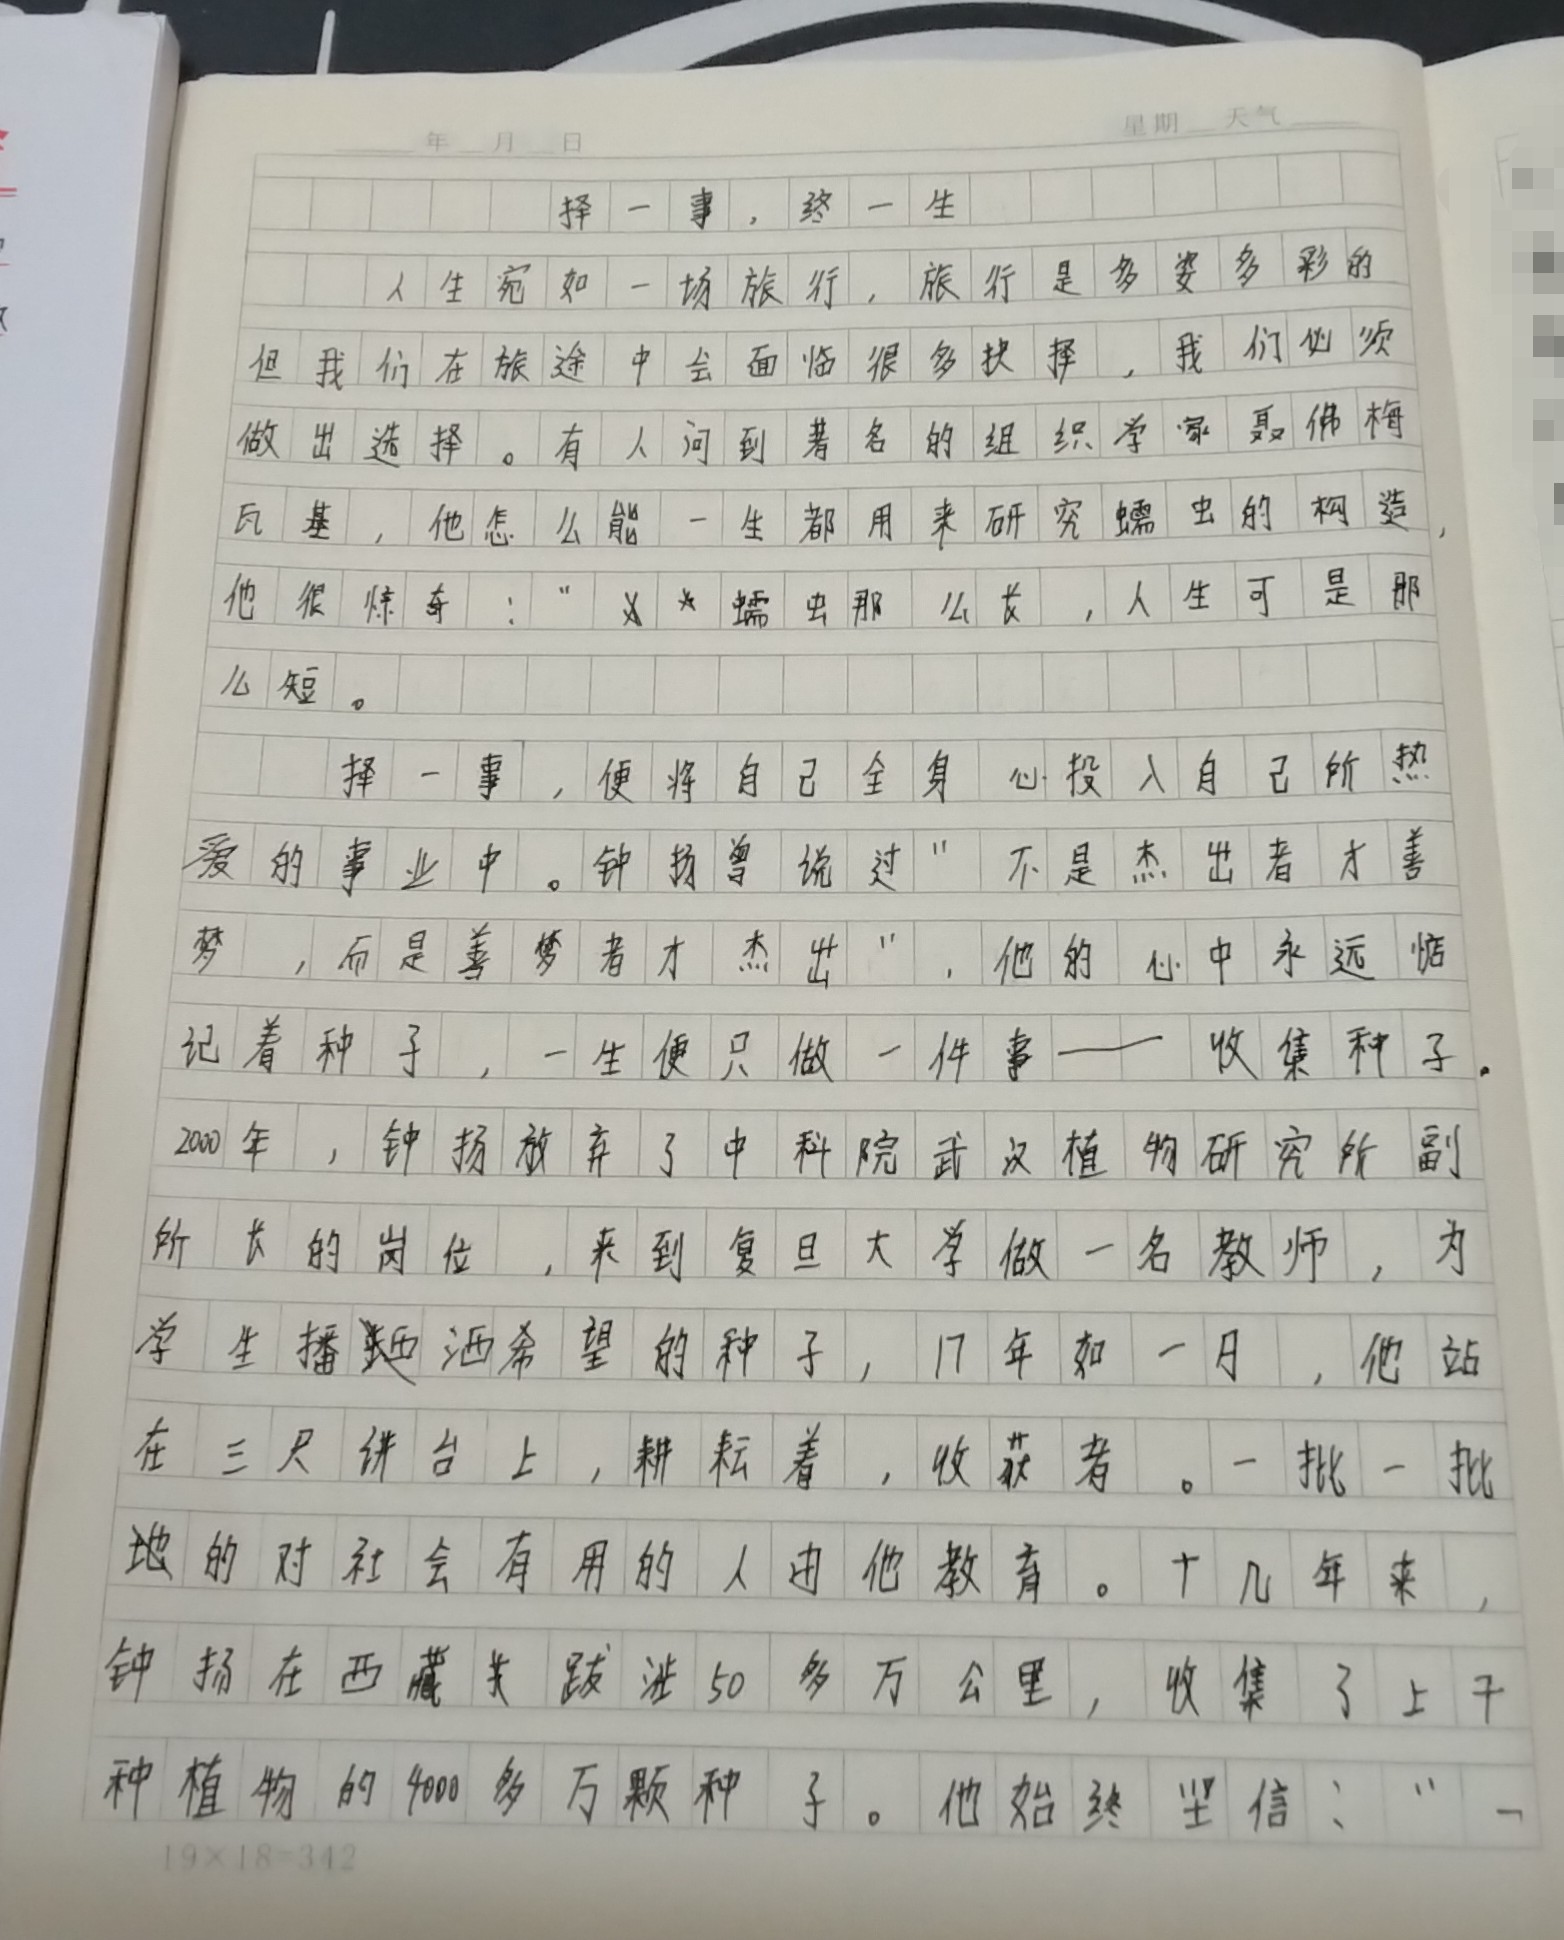 年 月 日 星期 天气
择一事,终一生
人生宛如一场旅行,旅行是多姿多彩的
但我们在旅途中会面临很多抉择,我们必须
做出选择。有人问到著名的组织学家聂佛梅
瓦基,他怎么能一生都用来研究蠕虫的构造,
他很惊奇:“蠕虫那么长,人生可是那
么短。
择一事,便将自己全身心投入自己所热
爱的事业中。钟扬曾说过“不是杰出者才善
梦,而是善梦者才杰出”,他的心中永远惦
记着种子,一生便只做一件事——收集种子.
2000年,钟扬放弃了中科院武汉植物研究所副
所长的岗位,来到复旦大学做一名教师,为
学生播洒希望的种子,17年如一日,他站
在三尺讲台上,耕耘着,收获者。一批一批
地的对社会有用的人由他教育。十几年来,
钟扬在西藏共跋涉50多万公里,收集了上千
种植物的4000多万颗种子。他始终坚信:“一
19×18=342